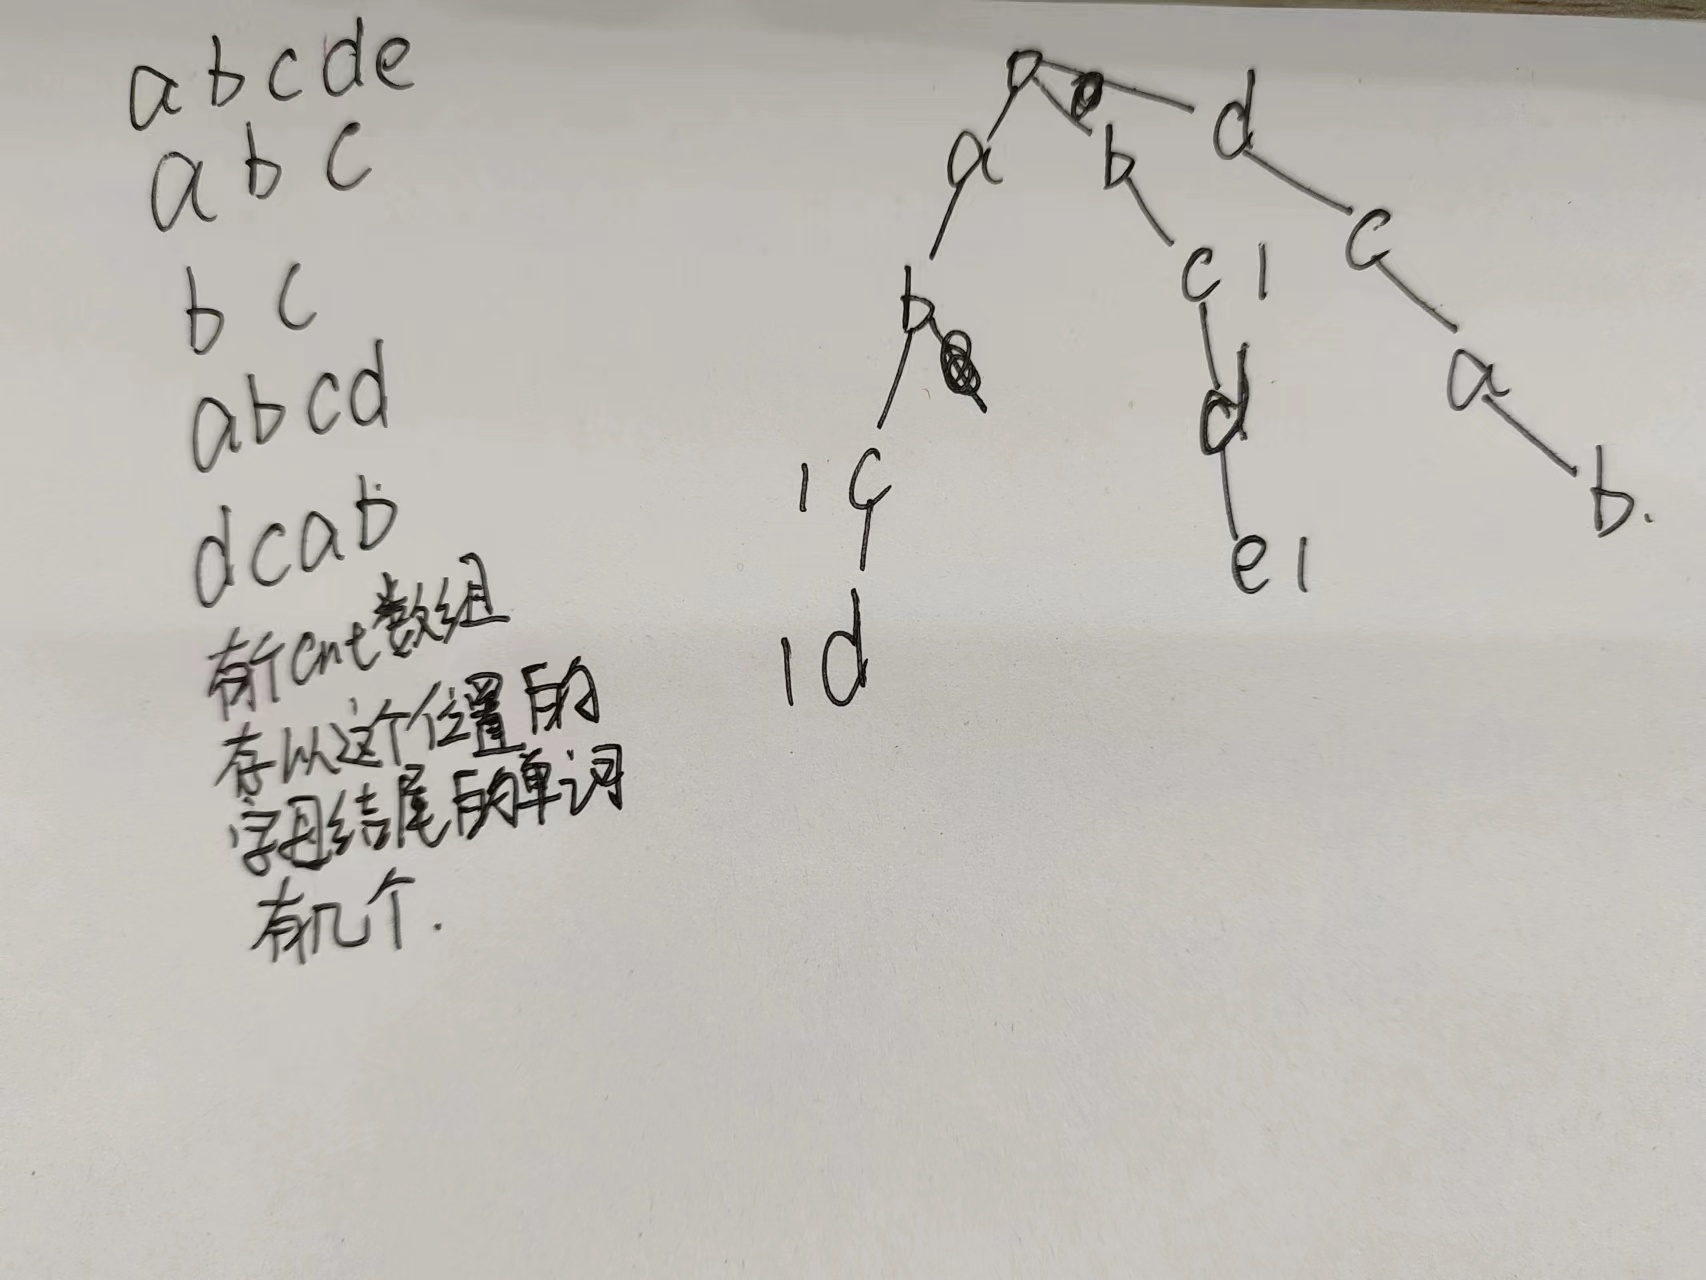 abcde
abc
bc
abcd
dcab
有个cnt数组
存以这个位置的
字母结尾的单词
有几个.
o
a b d
b c 1 c
1 c d a
1 d e 1 b.